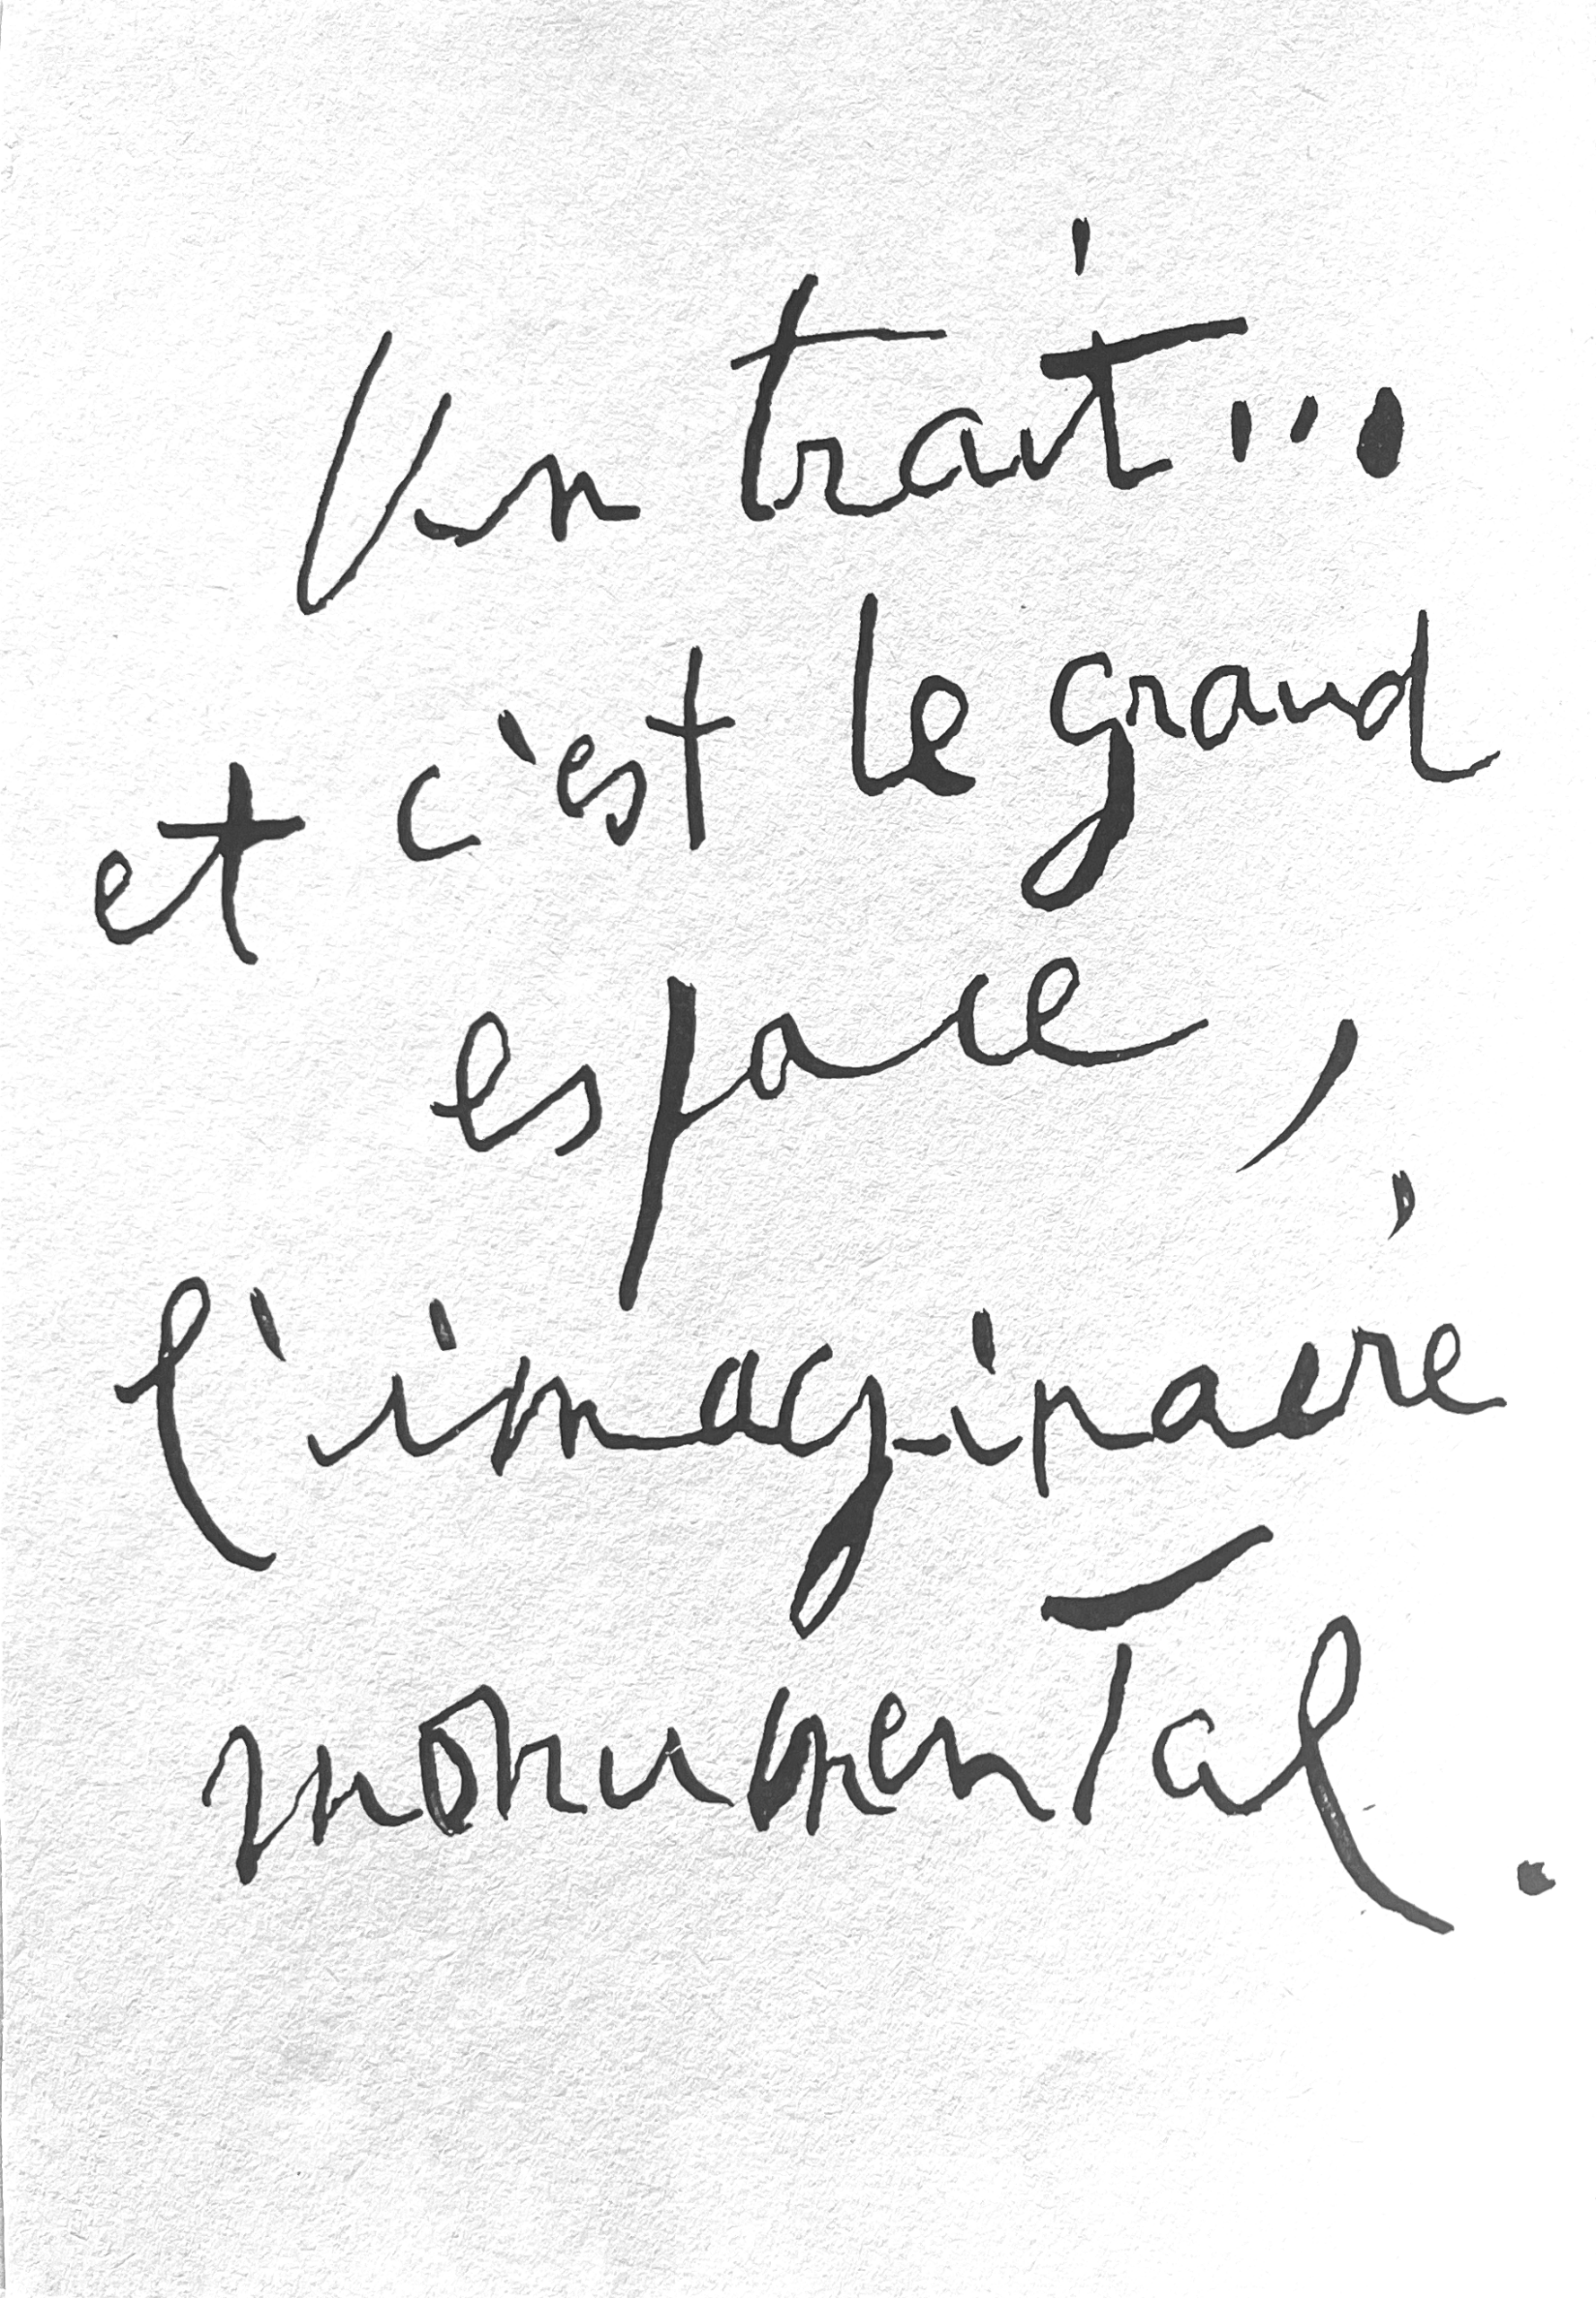 Un trait...
et c'est le grand
espace,
l'imaginaire
monumental.